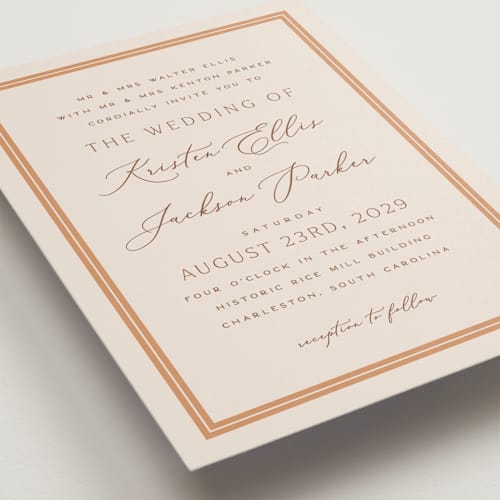 MR & MRS WALTER ELLIS
WITH MR & MRS KENTON PARKER
CORDIALLY INVITE YOU TO
THE WEDDING OF
Kristen Ellis
AND
Jackson Parker
SATURDAY
AUGUST 23RD, 2029
FOUR O'CLOCK IN THE AFTERNOON
HISTORIC RICE MILL BUILDING
CHARLESTON, SOUTH CAROLINA
reception to follow